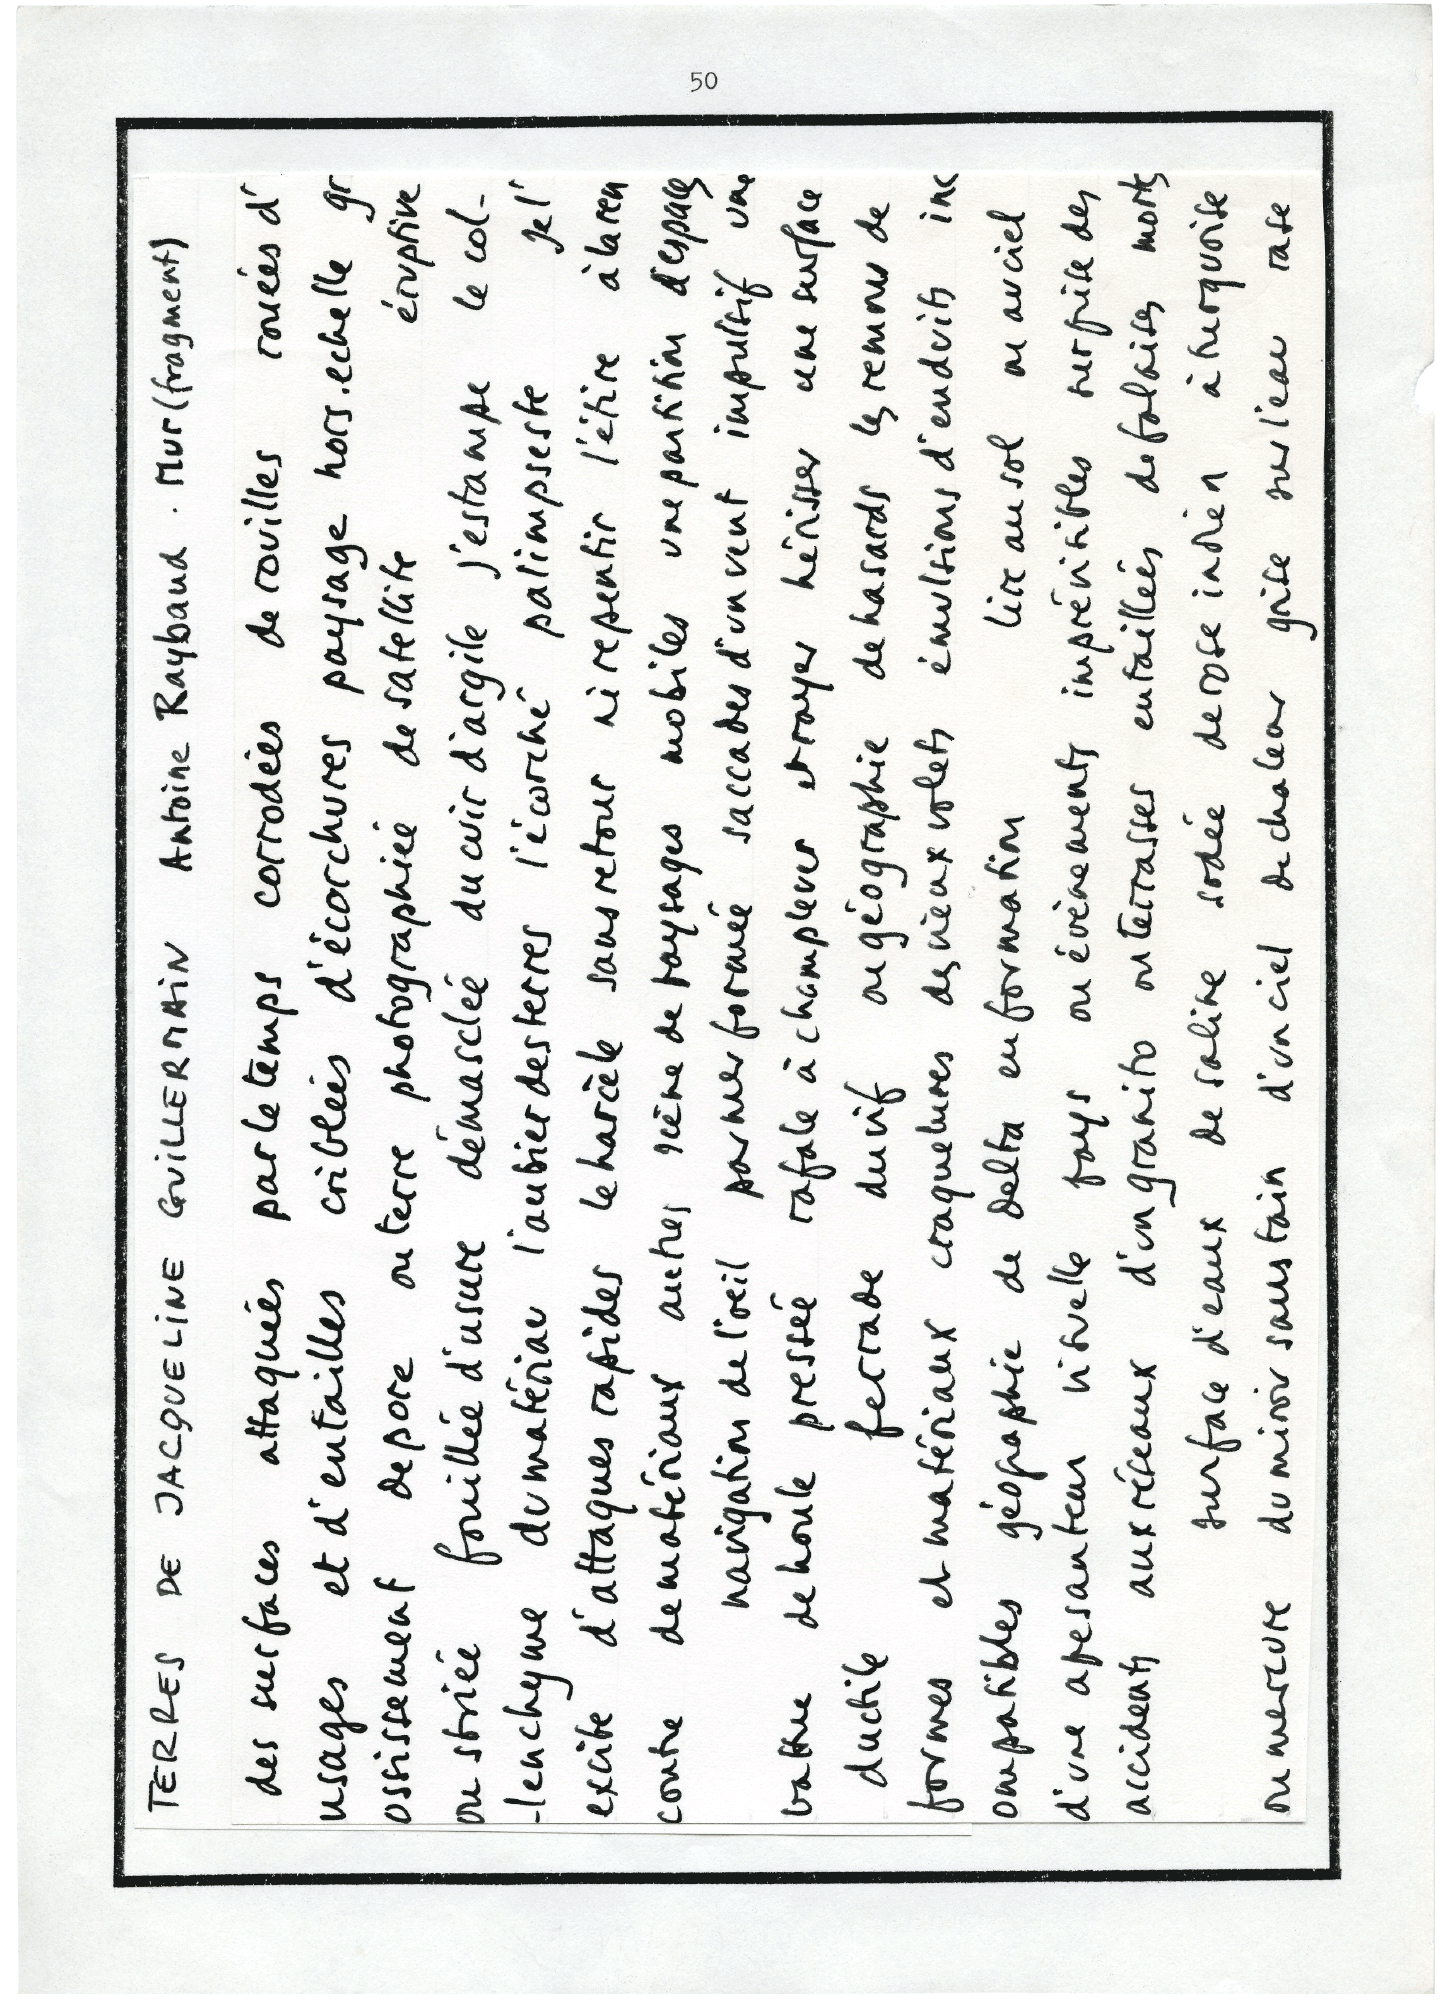 50
TERRES DE JACQUELINE GUILLERMAIN Antoine Raybaud . Mur (fragment)
des surfaces attaquées par le temps corrodées de rouilles rouées d'
usages et d'entailles criblées d'écorchures paysage hors.echelle gr
ossissement de pore ou terre photographiée de satellite éruptive
ou striée fouillée d'usure démasclée du cuir d'argile j'estampe le col-
-lenchyme du matériau l'aubier des terres l'écorché palimpseste Je l'
excite d'attaques rapides le harcèle sans retour ni repentir l'étire à la ren
contre de matériaux autres scène de paysages mobiles une partition d'espaces
navigation de l'oeil par mer formée saccades d'un vent impulsif une
battue de houle pressée rafale à champlever et rayer hérisser une surface
ductile ferrade du vif ou géographie de hasards les remous de
formes et matériaux craquelures des vieux volets émulsions d'enduits inc
ompatibles géographie de Delta en formation lire au sol ou au ciel
d'une apesanteur visuelle pays ou évènements imprévisibles surprise des
accidents aux réseaux d'un granito ou terrasses entaillées de falaises mortes
surface d'eaux de saline sodée de rose indien à turquoise
ou mercure du miroir sans tain d'un ciel de chaleur grise sur l'eau rase